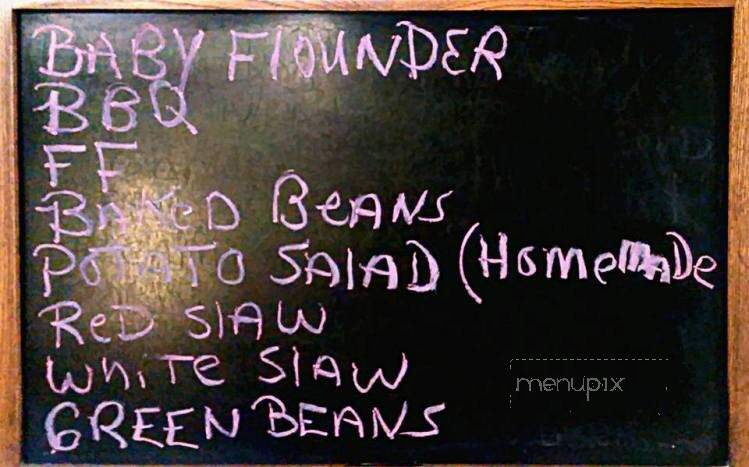 BABY FlOUNDER
BBQ
FF
BAKeD BeANS
POTATO SAlAD (HomemaDe
ReD SlAW
WhiTe SlAW
GREEN BEANS
menupix